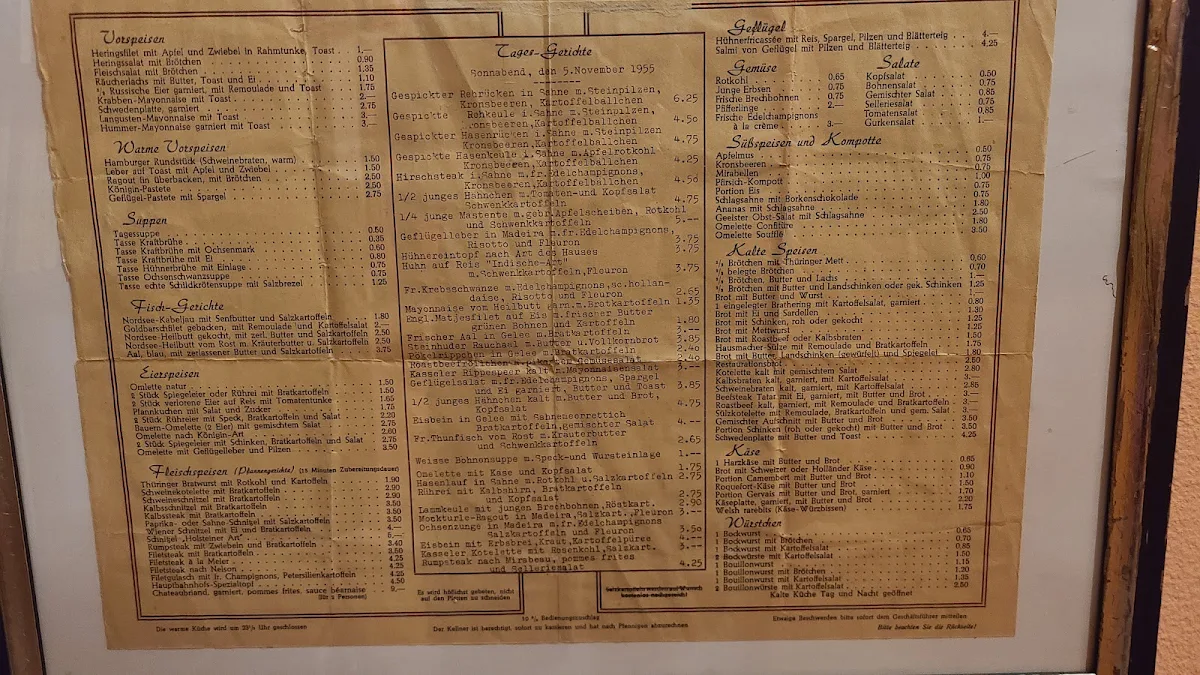 Vorspeisen
Heringsfilet mit Apfel und Zwiebel in Rahmtunke, Toast . . 1,—
Heringssalat mit Brötchen 0.90
Fleischsalat mit Brötchen 1.35
Räucherlachs mit Butter, Toast und Ei 1.10
½ Russische Eier garniert, mit Remoulade und Toast 1.75
Krabben-Mayonnaise mit Toast 2.—
Schwedenplatte, garniert 2.75
Langusten-Mayonnaise mit Toast 3.—
Hummer-Mayonnaise garniert mit Toast 3.—
Warme Vorspeisen
Hamburger Rundstück (Schweinebraten, warm) 1.50
Leber auf Toast mit Apfel und Zwiebel 1.50
Ragout fin überbacken, mit Brötchen 2.50
Königin-Pastete 2.50
Geflügel-Pastete mit Spargel 2.75
Suppen
Tagessuppe 0.50
Tasse Kraftbrühe 0.35
Tasse Kraftbrühe mit Ochsenmark 0.60
Tasse Kraftbrühe mit Ei 0.80
Tasse Hühnerbrühe mit Einlage 0.75
Tasse Ochsenschwanzsuppe 0.75
Tasse echte Schildkrötensuppe mit Salzbrezel 1.25
Fisch-Gerichte
Nordsee-Kabeljau mit Senfbutter und Salzkartoffeln 1.80
Goldbarschfilet gebacken, mit Remoulade und Kartoffelsalat 2.—
Nordsee-Heilbutt gekocht, mit zerl. Butter und Salzkartoffeln 2.50
Nordsee-Heilbutt vom Rost m. Kräuterbutter u. Salzkartoffeln 2.50
Aal, blau, mit zerlassener Butter und Salzkartoffeln 3.75
Eierspeisen
Omlette natur 1.50
2 Stück Spiegeleier oder Rührei mit Bratkartoffeln 1.50
2 Stück verlorene Eier auf Reis mit Tomatentunke 1.65
Pfannkuchen mit Salat und Zucker 1.75
2 Stück Rühreier mit Speck, Bratkartoffeln und Salat 2.20
Bauern-Omelette (2 Eier) mit gemischtem Salat 2.75
Omelette nach Königin-Art 2.60
2 Stück Spiegeleier mit Schinken, Bratkartoffeln und Salat 2.75
Omelette mit Geflügelleber und Pilzen 3.50
Fleischspeisen (Pfannengerichte) (15 Minuten Zubereitungsdauer)
Thüringer Bratwurst mit Rotkohl und Kartoffeln 1.90
Schweinekotelette mit Bratkartoffeln 2.90
Schweineschnitzel mit Bratkartoffeln 2.90
Kalbsschnitzel mit Bratkartoffeln 3.50
Kalbssteak mit Bratkartoffeln 3.50
Paprika- oder Sahne-Schnitzel mit Salzkartoffeln 3.50
Wiener Schnitzel mit Ei und Bratkartoffeln 4.—
Schnitzel „Holsteiner Art"
Rumpsteak mit Zwiebeln und Bratkartoffeln 3.40
Filetsteak mit Bratkartoffeln 3.50
Filetsteak à la Meier 4.25
Filetsteak nach Nelson 4.25
Filetgulasch mit fr. Champignons, Petersilienkartoffeln 4.25
Hauptbahnhofs-Spezialtopf 4.50
Chateaubriand, garniert, pommes frites, sauce béarnaise 9.—
(für 2 Personen)
Tages-Gerichte
Sonnabend, den 5.November 1955
Gespickter Rehrücken in Sahne m.Steinpilzen,
Kronsbeeren, Kartoffelballchen 6.25
Gespickte Rehkeule i.Sahne m.Steinpilzen,
Kronsbeeren,Kartoffelballchen 4.50
Gespickter Hasenrücken i.Sahne m.Steinpilzen
Kronsbeeren,Kartoffelballchen 4.75
Gespickte Hasenkeule i.Sahne m.Apfelrotkohl
Kronsbeeren,Kartoffelballchen 4.25
Hirschsteak i.Sahne m.fr.Edelchampignons,
Kronsbeeren,Kartoffelballchen 4.50
1/2 junges Hähnchen m.Tomaten-und Kopfsalat
Schwenkkartoffeln 4.75
1/4 junge Mastente m.gebr.Apfelscheiben, Rotkohl
und Schwenkkartoffeln 5.—
Geflügelleber in Madeira m.fr.Edelchampignons,
Risotto und Fleuron 3.75
Hühnereintopf nach Art des Hauses 3.75
Huhn auf Reis "Indische-Art"
m.Schwenkkartoffeln,Fleuron 3.75
Fr.Krebsschwänze m.Edelchampignons,sc.hollan-
daise, Risotto und Fleuron 2.65
Mayonnaise vom Heilbutt garn.m.Bratkartoffeln 1.35
Engl.Matjesfilet auf Eis m.frischer Butter
grünen Bohnen und Kartoffeln 1.80
Frischer Aal in Gelee m.Bratkartoffeln 3.—
Steinhuder Rauchaal m.Butter u.Vollkornbrot 3.85
Pökelrippchen in Gelee m.Bratkartoffeln 2.40
2.40
Kasseler Rippespeer kalt m.Mayonnaisensalat 3.—
Geflügelsalat m.fr.Edelchampignons, Spargel
und Ei garniert, Butter und Toast 3.85
1/2 junges Hähnchen kalt m.Butter und Brot,
Kopfsalat 4.75
Eisbein in Gelee mit Sahnemeerrettich
Bratkartoffeln,gemischter Salat 4.—
Fr.Thunfisch vom Rost m.Kräuterbutter
und Schwenkkartoffeln 2.65
Weisse Bohnensuppe m.Speck-und Wursteinlage 1.—
Omelette mit Käse und Kopfsalat 1.75
Hasenlauf in Sahne m.Rotkohl u.Salzkartoffeln 2.75
Rührei mit Kalbshirn, Bratkartoffeln
und Kopfsalat 2.75
Lammkeule mit jungen Brechbohnen,Röstkart. 2.90
Mockturle-Ragout in Madeira,Salzkart.,Fleuron 3.—
Ochsenzunge in Madeira m.fr.Edelchampignons
Salzkartoffeln und Fleuron 3.50
Eisbein mit Erbsbrei,Kraut,Kartoffelpüree 4.—
Kasseler Kotelette mit Rosenkohl,Salzkart. 3.—
Rumpsteak nach Mirabeau, pommes frites
und Selleriesalat 4.25
Es wird höflichst gebeten, nicht
auf den Fluren zu schneiden
Geflügel
Hühnerfricassée mit Reis, Spargel, Pilzen und Blätterteig 4.—
Salmi von Geflügel mit Pilzen und Blätterteig 4.25
Gemüse
Rotkohl 0.65
Junge Erbsen 0.75
Frische Brechbohnen 0.75
Pfifferlinge 2.—
Frische Edelchampignons
à la crème 3.—
Salate
Kopfsalat 0.50
Bohnensalat 0.75
Gemischter Salat 0.85
Selleriesalat 0.75
Tomatensalat 0.85
Gurkensalat 1.—
Süßspeisen und Kompotte
Apfelmus 0.50
Kronsbeeren 0.75
Mirabellen 0.75
Pfirsich-Kompott 1.00
Portion Eis 0.75
Schlagsahne mit Borkenschokolade 0.75
Ananas mit Schlagsahne 1.80
Geeister Obst-Salat mit Schlagsahne 2.50
Omelette Confiture 1.80
Omelette Soufflé 3.50
Kalte Speisen
½ Brötchen mit Thüringer Mett 0.60
½ belegte Brötchen 0.70
½ Brötchen, Butter und Lachs 1.—
½ Brötchen mit Butter und Landschinken oder gek. Schinken 1.25
Brot mit Butter und Wurst 1.—
1 eingelegter Brathering mit Kartoffelsalat, garniert 0.80
Brot mit Ei und Sardellen 1.30
Brot mit Schinken, roh oder gekocht 1.25
Brot mit Mettwurst 1.50
Brot mit Roastbeef oder Kalbsbraten
Hausmacher-Sülze mit Remoulade und Bratkartoffeln 1.75
Brot mit Butter, Landschinken (gewürfelt) und Spiegelei 1.80
Restaurationsbrot 2.50
Kotelette kalt mit gemischtem Salat 2.80
Kalbsbraten kalt, garniert, mit Kartoffelsalat 3.—
Schweinebraten kalt, garniert, mit Kartoffelsalat 2.85
Beefsteak Tatar mit Ei, garniert, mit Butter und Brot 3.—
Roastbeef kalt, garniert, mit Remoulade und Bratkartoffeln 3.50
Sülzkotelette mit Remoulade, Bratkartoffeln und gem. Salat 3.—
Gemischter Aufschnitt mit Butter und Brot 3.50
Portion Schinken (roh oder gekocht) mit Butter und Brot 3.50
Schwedenplatte mit Butter und Toast 4.25
Käse
1 Harzkäse mit Butter und Brot 0.65
Brot mit Schweizer oder Holländer Käse 0.90
Portion Camembert mit Butter und Brot 1.10
Roquefort-Käse mit Butter und Brot 1.50
Portion Gervais mit Butter und Brot, garniert 1.70
Käseplatte, garniert, mit Butter und Brot 2.20
Welsh rarebits (Käse-Würzbissen) 1.75
Würstchen
1 Bockwurst 0.65
1 Bockwurst mit Brötchen 0.70
1 Bockwurst mit Kartoffelsalat 0.85
2 Bockwürste mit Kartoffelsalat 1.50
1 Bouillonwurst 1.15
1 Bouillonwurst mit Brötchen 1.20
1 Bouillonwurst mit Kartoffelsalat 1.35
2 Bouillonwürste mit Kartoffelsalat 2.50
Kalte Küche Tag und Nacht geöffnet
Die warme Küche wird um 23½ Uhr geschlossen
10 % Bedienungszuschlag
Der Kellner ist berechtigt, sofort zu kassieren und hat nach Pfennigen abzurechnen
Etwaige Beschwerden bitte sofort dem Geschäftsführer mitteilen
Bitte beachten Sie die Rückseite!